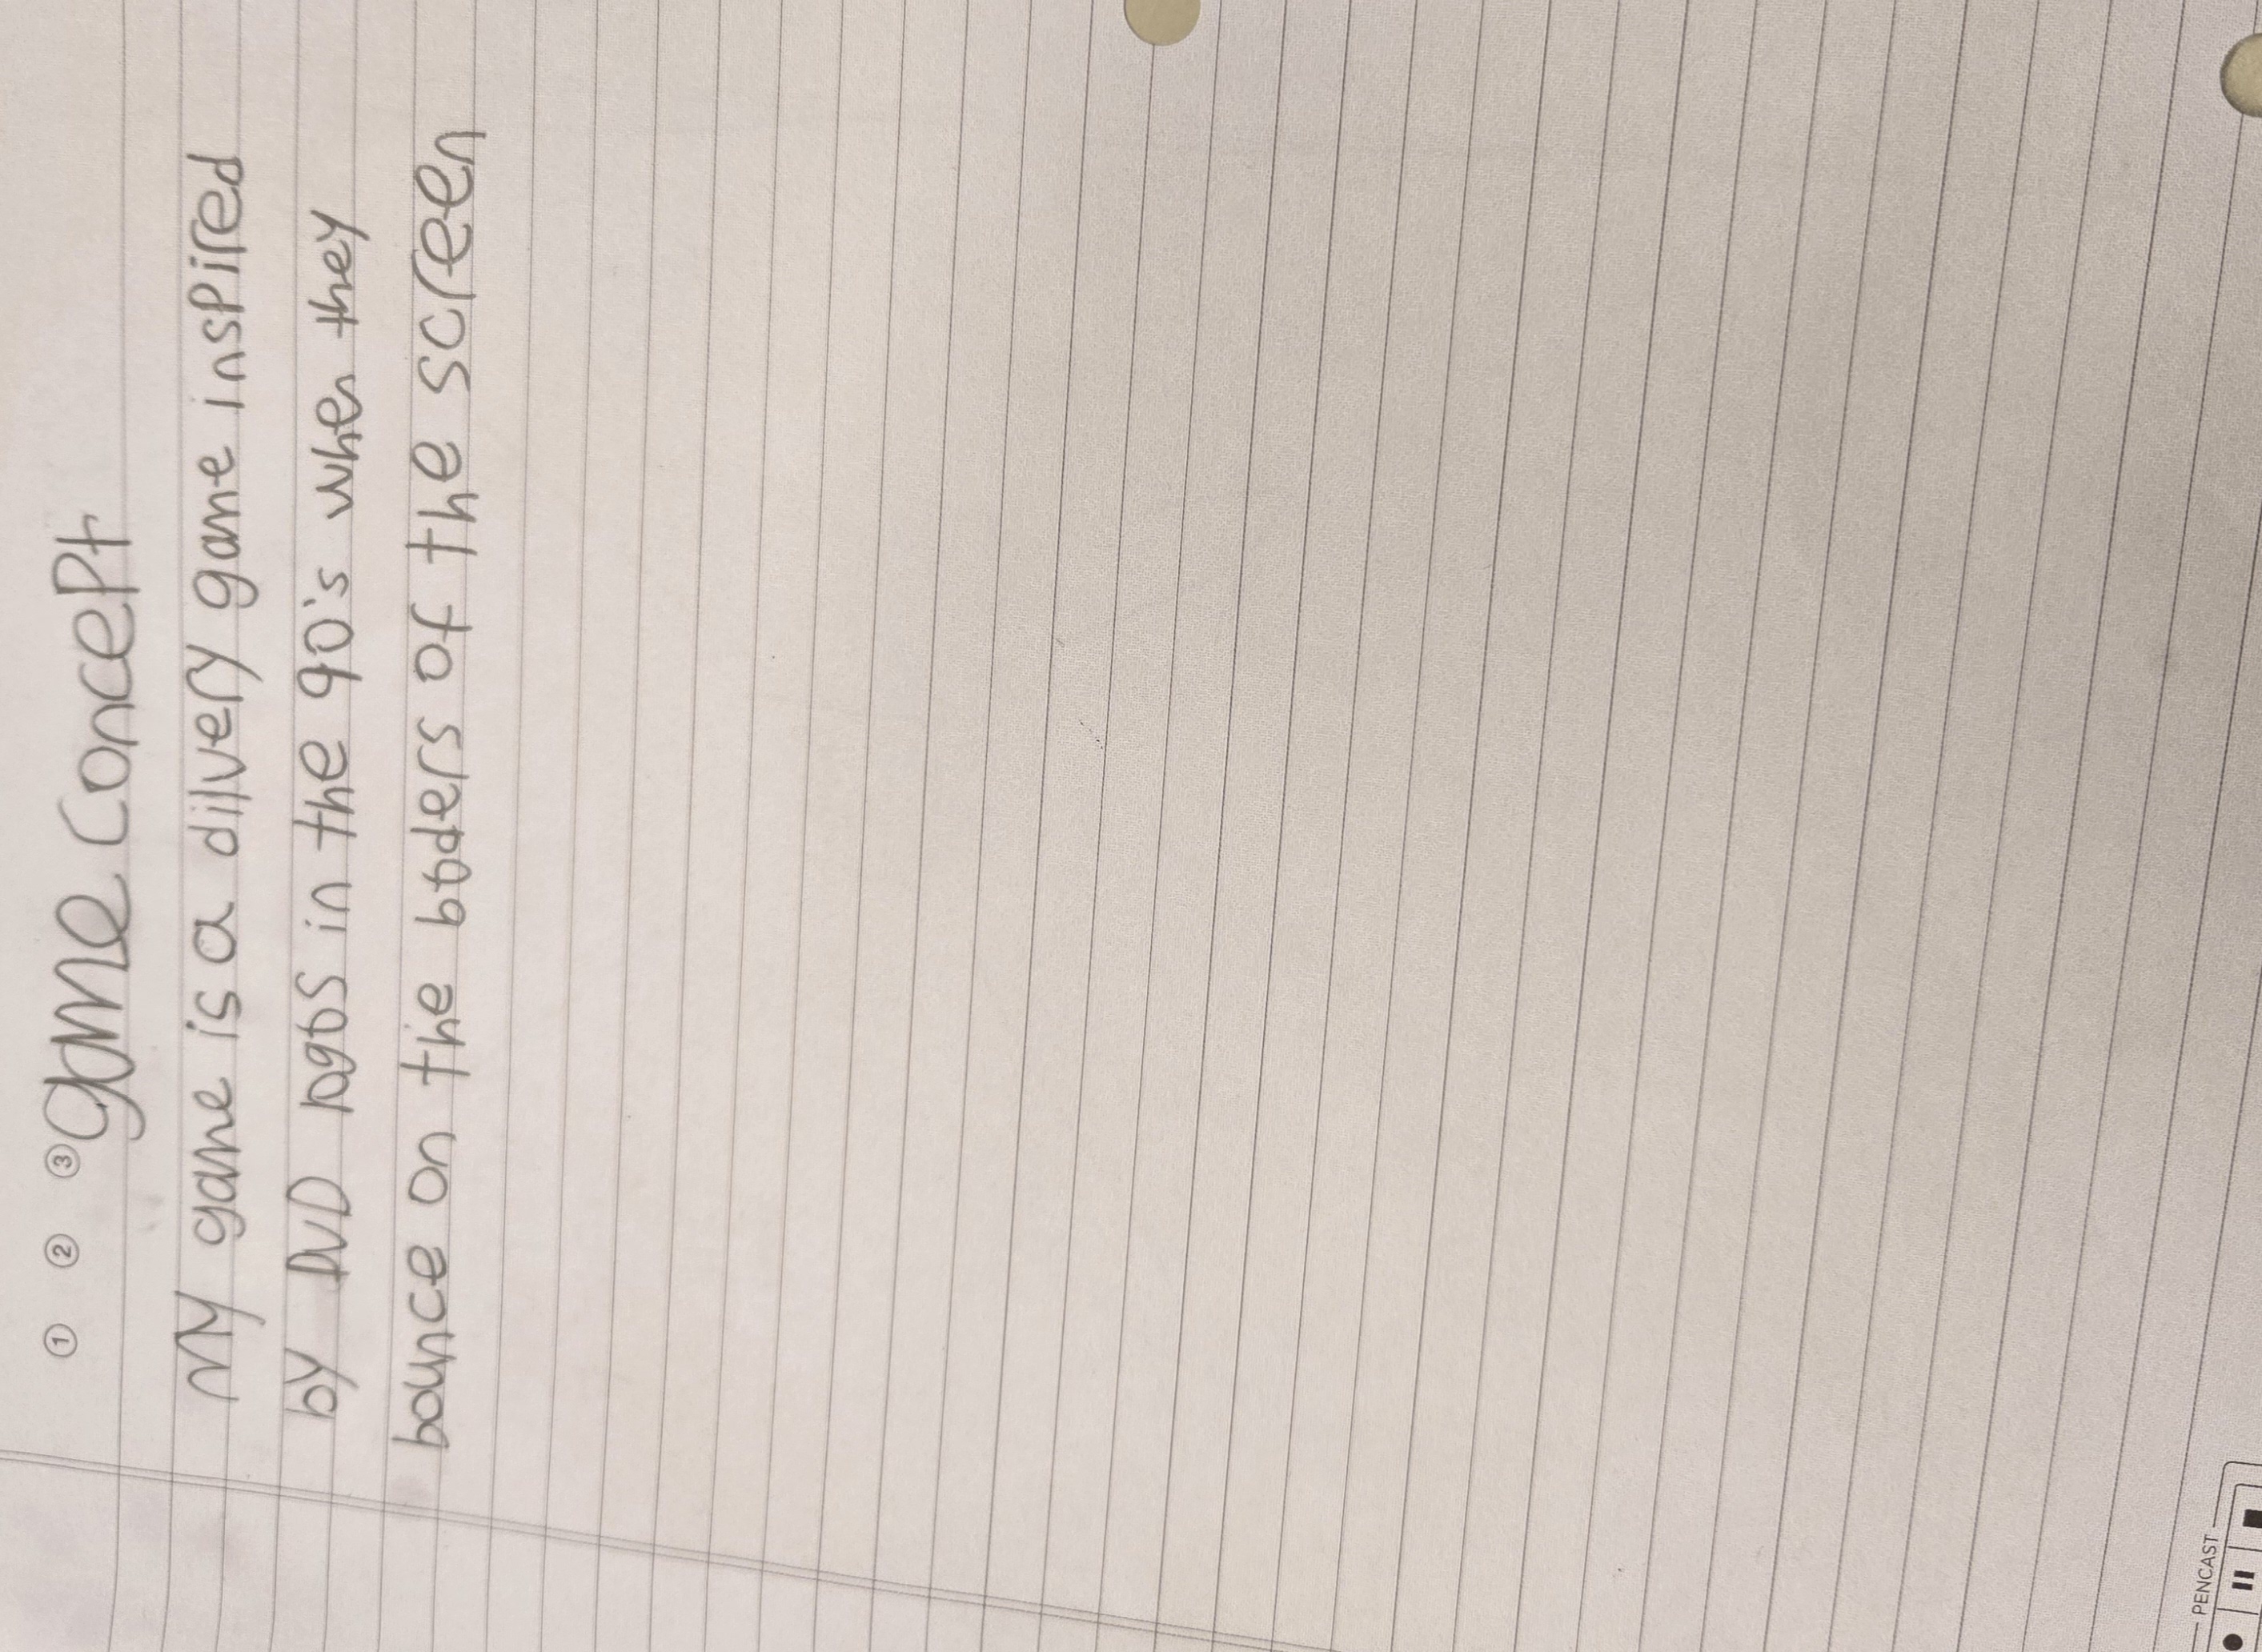 ① ② ③
Game Concept
My game is a dilvery game inspired
by DVD logos in the 90's when they
bounce on the boders of the screen
PENCAST